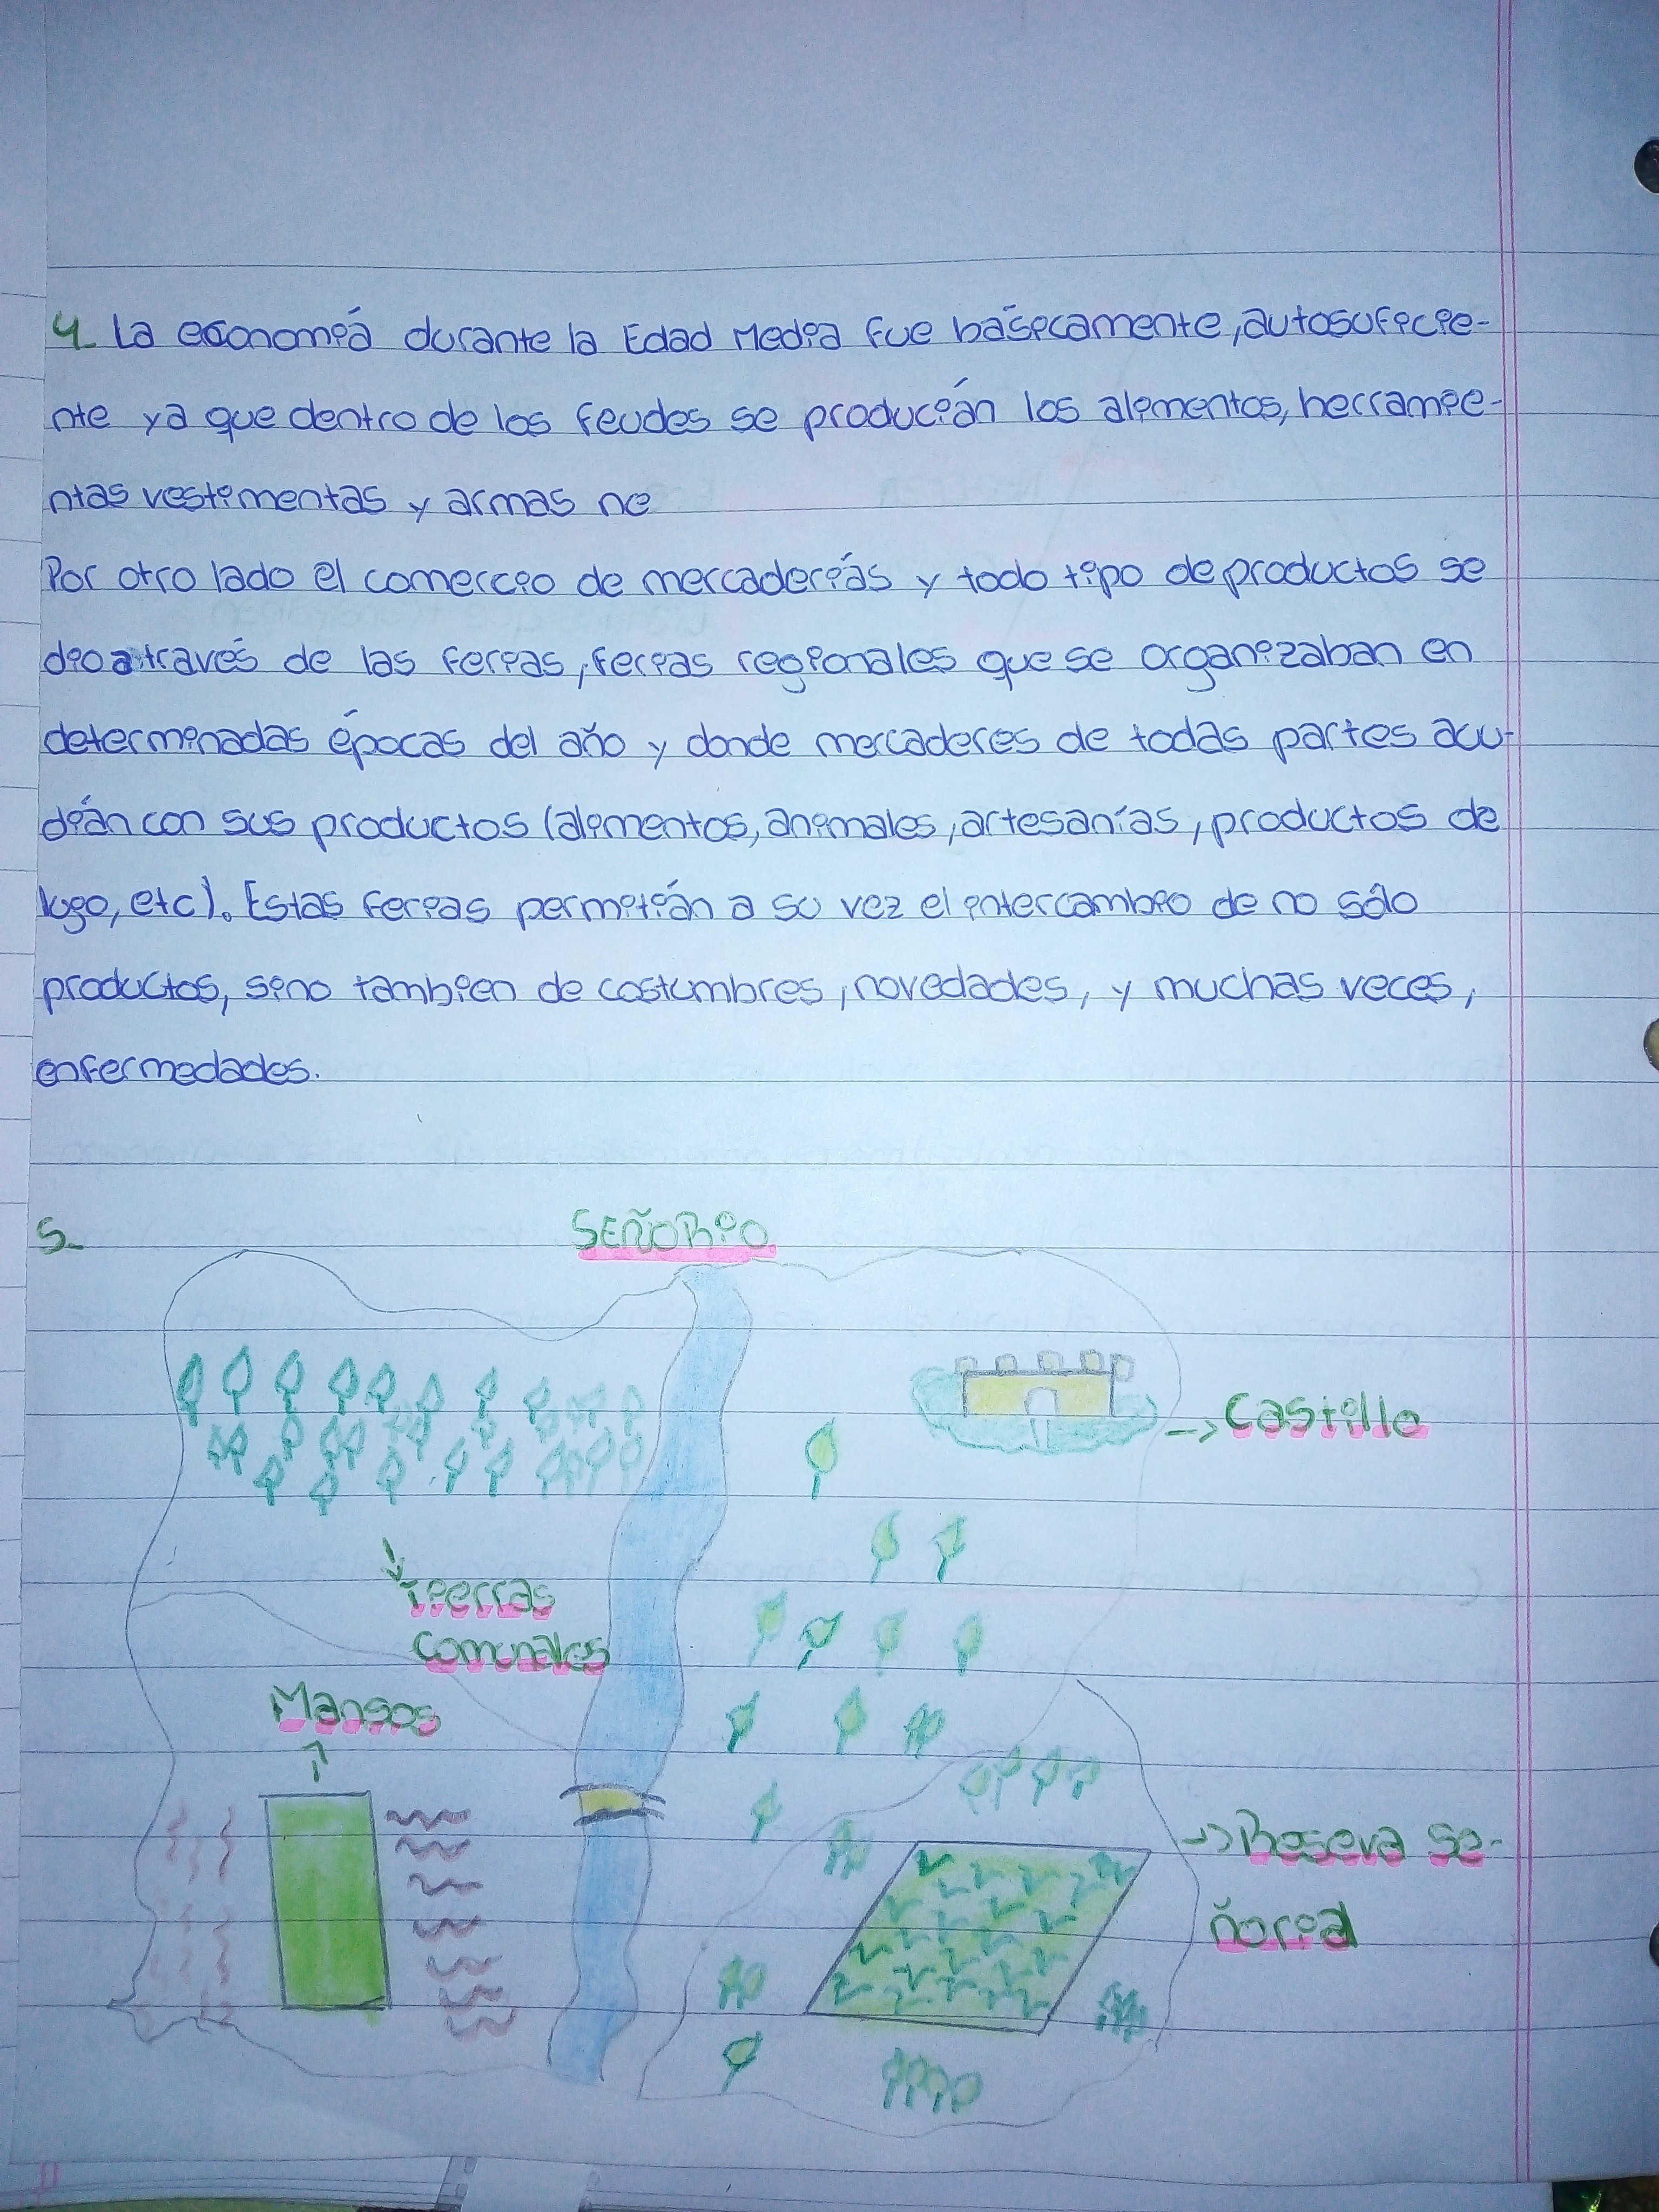 4_ La economiá durante la Edad Media fue básicamente, autosuficie-
nte ya que dentro de los feudes se producián los alimentos, herramie-
ntas vestimentas y armas ne
Por otro lado el comercio de mercaderiás y todo tipo de productos se
dio a través de las ferias, ferias regionales que se organizaban en
determinadas épocas del año y donde mercaderes de todas partes acu-
dián con sus productos (alimentos, animales, artesanías, productos de
lujo, etc). Estas ferias permitián a su vez el intercambio de no sólo
productos, sino tambien de costumbres, novedades, y muchas veces,
enfermedades.
5_
SEÑORio
→ Castillo
Tierras
comunales
Mansos
→ Reseva se-
ñorial